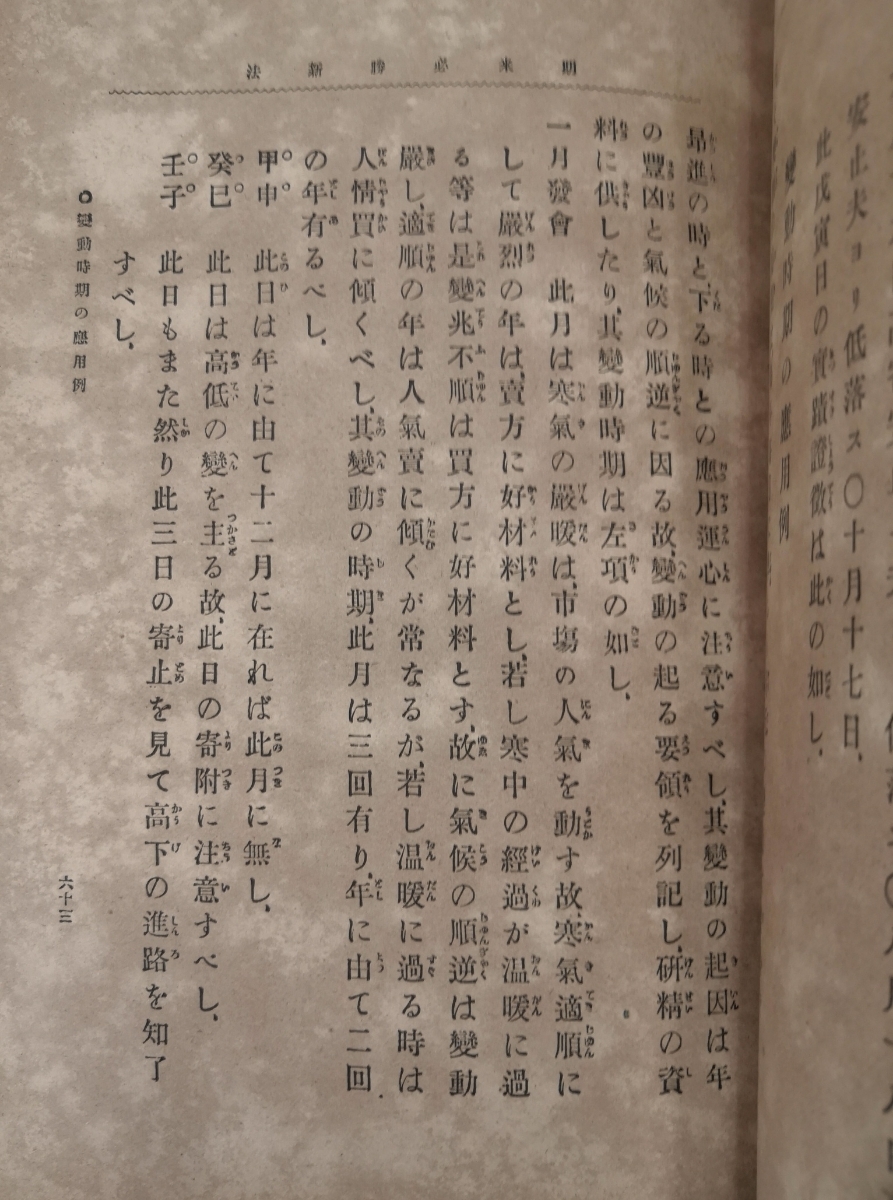 期米必勝新法
昻進の時と、下る時との應用運心に注意すべし、其變動の起因は年
の豐凶と氣候の順逆に因る故、變動の起る要領を列記し、硏精の資
料に供したり、其變動時期は左項の如し、
一月發會　此月は寒氣の嚴暖は、市場の人氣を動す故、寒氣適順に
して嚴烈の年は、賣方に好材料とし、若し寒中の經過が温暖に過
る等は是變兆不順は買方に好材料とす、故に氣候の順逆は變動
嚴し、適順の年は人氣賣に傾くが常なるが、若し温暖に過る時は
人情買に傾くべし、其變動の時期、此月は三回有り、年に由て二回
の年有るべし、
甲申　此日は年に由て十二月に在れば此月に無し、
癸巳　此日は高低の變を主る故、此日の寄附に注意すべし、
壬子　此日もまた然り此三日の寄止を見て高下の進路を知了
すべし、
◎變動時期の應用例
六十三
低落ス〇十月十七日、
此戊寅日の實蹟證徴は此の如し、
變動時期の應用例